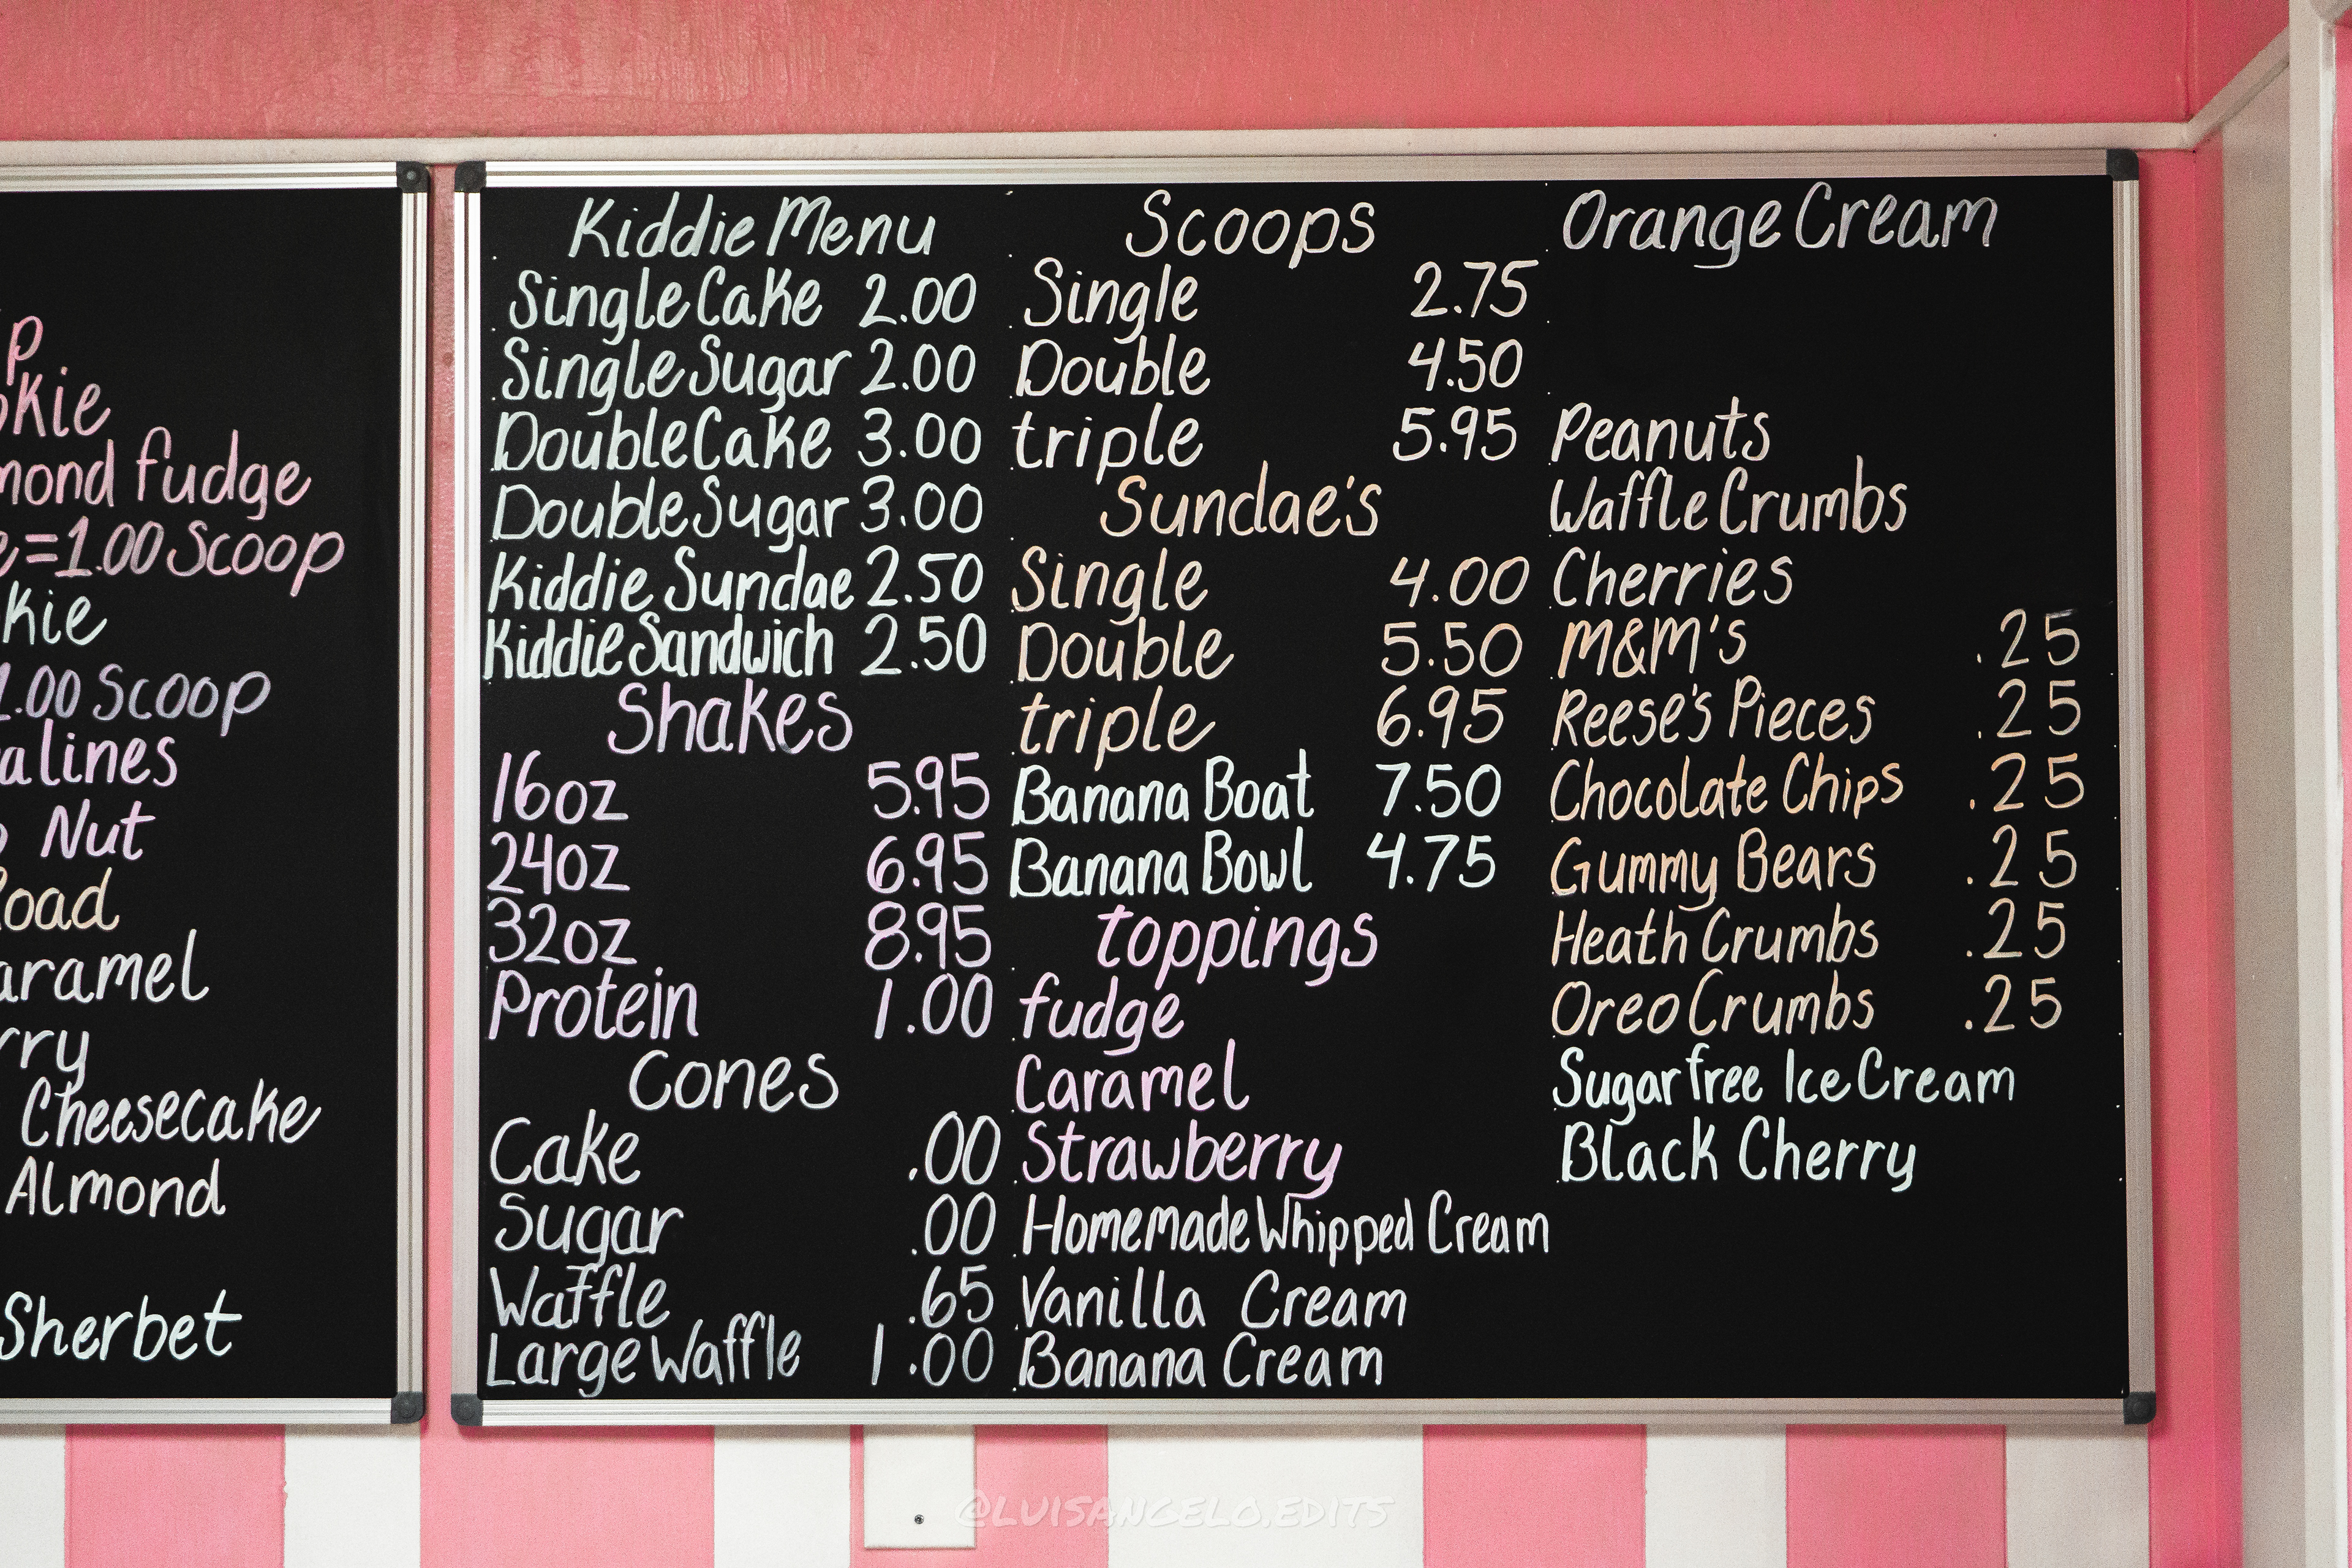 p
kie
mond fudge
e=1.00 Scoop
kie
1.00 Scoop
alines
Nut
oad
aramel
rry
Cheesecake
Almond
Sherbet
Kiddie Menu
Single Cake 2.00
Single Sugar 2.00
Double Cake 3.00
Double Sugar 3.00
Kiddie Sundae 2.50
Kiddie Sandwich 2.50
Shakes
16oz 5.95
24oz 6.95
32oz 8.95
Protein 1.00
Cones
Cake .00
Sugar .00
Waffle .65
Large Waffle 1.00
Scoops
Single 2.75
Double 4.50
triple 5.95
Sundae's
Single 4.00
Double 5.50
triple 6.95
Banana Boat 7.50
Banana Bowl 4.75
toppings
fudge
Caramel
Strawberry
Homemade Whipped Cream
Vanilla Cream
Banana Cream
Orange Cream
Peanuts
Waffle Crumbs
Cherries
M&M's .25
Reese's Pieces .25
Chocolate Chips .25
Gummy Bears .25
Heath Crumbs .25
Oreo Crumbs .25
Sugar free Ice Cream
Black Cherry
@LUISANGELO.EDITS